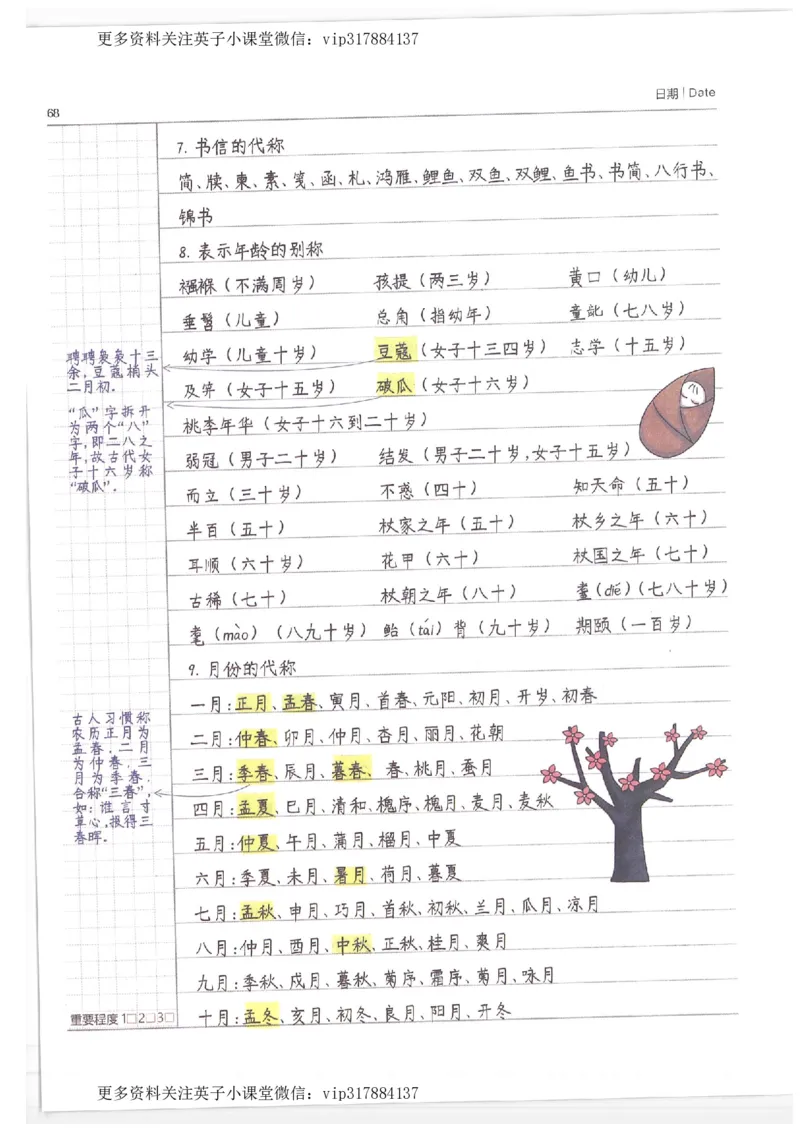 更多资料关注英子小课堂微信：vip317884137
日期 | Date
68
7. 书信的代称
简、牍、柬、素、笺、函、札、鸿雁、鲤鱼、双鱼、双鲤、鱼书、书简、八行书、
锦书
8. 表示年龄的别称
襁褓（不满周岁） 孩提（两三岁） 黄口（幼儿）
垂髫（儿童） 总角（指幼年） 童龀（七八岁）
幼学（儿童十岁） 豆蔻（女子十三四岁） 志学（十五岁）
及笄（女子十五岁） 破瓜（女子十六岁）
桃李年华（女子十六到二十岁）
弱冠（男子二十岁） 结发（男子二十岁,女子十五岁）
而立（三十岁） 不惑（四十） 知天命（五十）
半百（五十） 杖家之年（五十） 杖乡之年（六十）
耳顺（六十岁） 花甲（六十） 杖国之年（七十）
古稀（七十） 杖朝之年（八十） 耋(dié)（七八十岁）
耄（mào）（八九十岁） 鲐（tái）背（九十岁） 期颐（一百岁）
聘聘袅袅十三
余,豆蔻梢头
二月初.
“瓜”字拆开
为两个“八”
字,即二八之
年,故古代女
子十六岁称
“破瓜”.
9. 月份的代称
一月:正月、孟春、寅月、首春、元阳、初月、开岁、初春
二月:仲春、卯月、仲月、杏月、丽月、花朝
三月:季春、辰月、暮春、 春、桃月、蚕月
四月:孟夏、巳月、清和、槐序、槐月、麦月、麦秋
五月:仲夏、午月、蒲月、榴月、中夏
六月:季夏、未月、暑月、荷月、暮夏
七月:孟秋、申月、巧月、首秋、初秋、兰月、瓜月、凉月
八月:仲月、酉月、中秋、正秋、桂月、爽月
九月:季秋、戌月、暮秋、菊序、霜序、菊月、咏月
十月:孟冬、亥月、初冬、良月、阳月、开冬
古人习惯称
农历正月为
孟春,二月
为仲春,三
月为季春.
合称“三春”,
如:谁言寸
草心,报得三
春晖.
重要程度 1□2□3□
更多资料关注英子小课堂微信：vip317884137